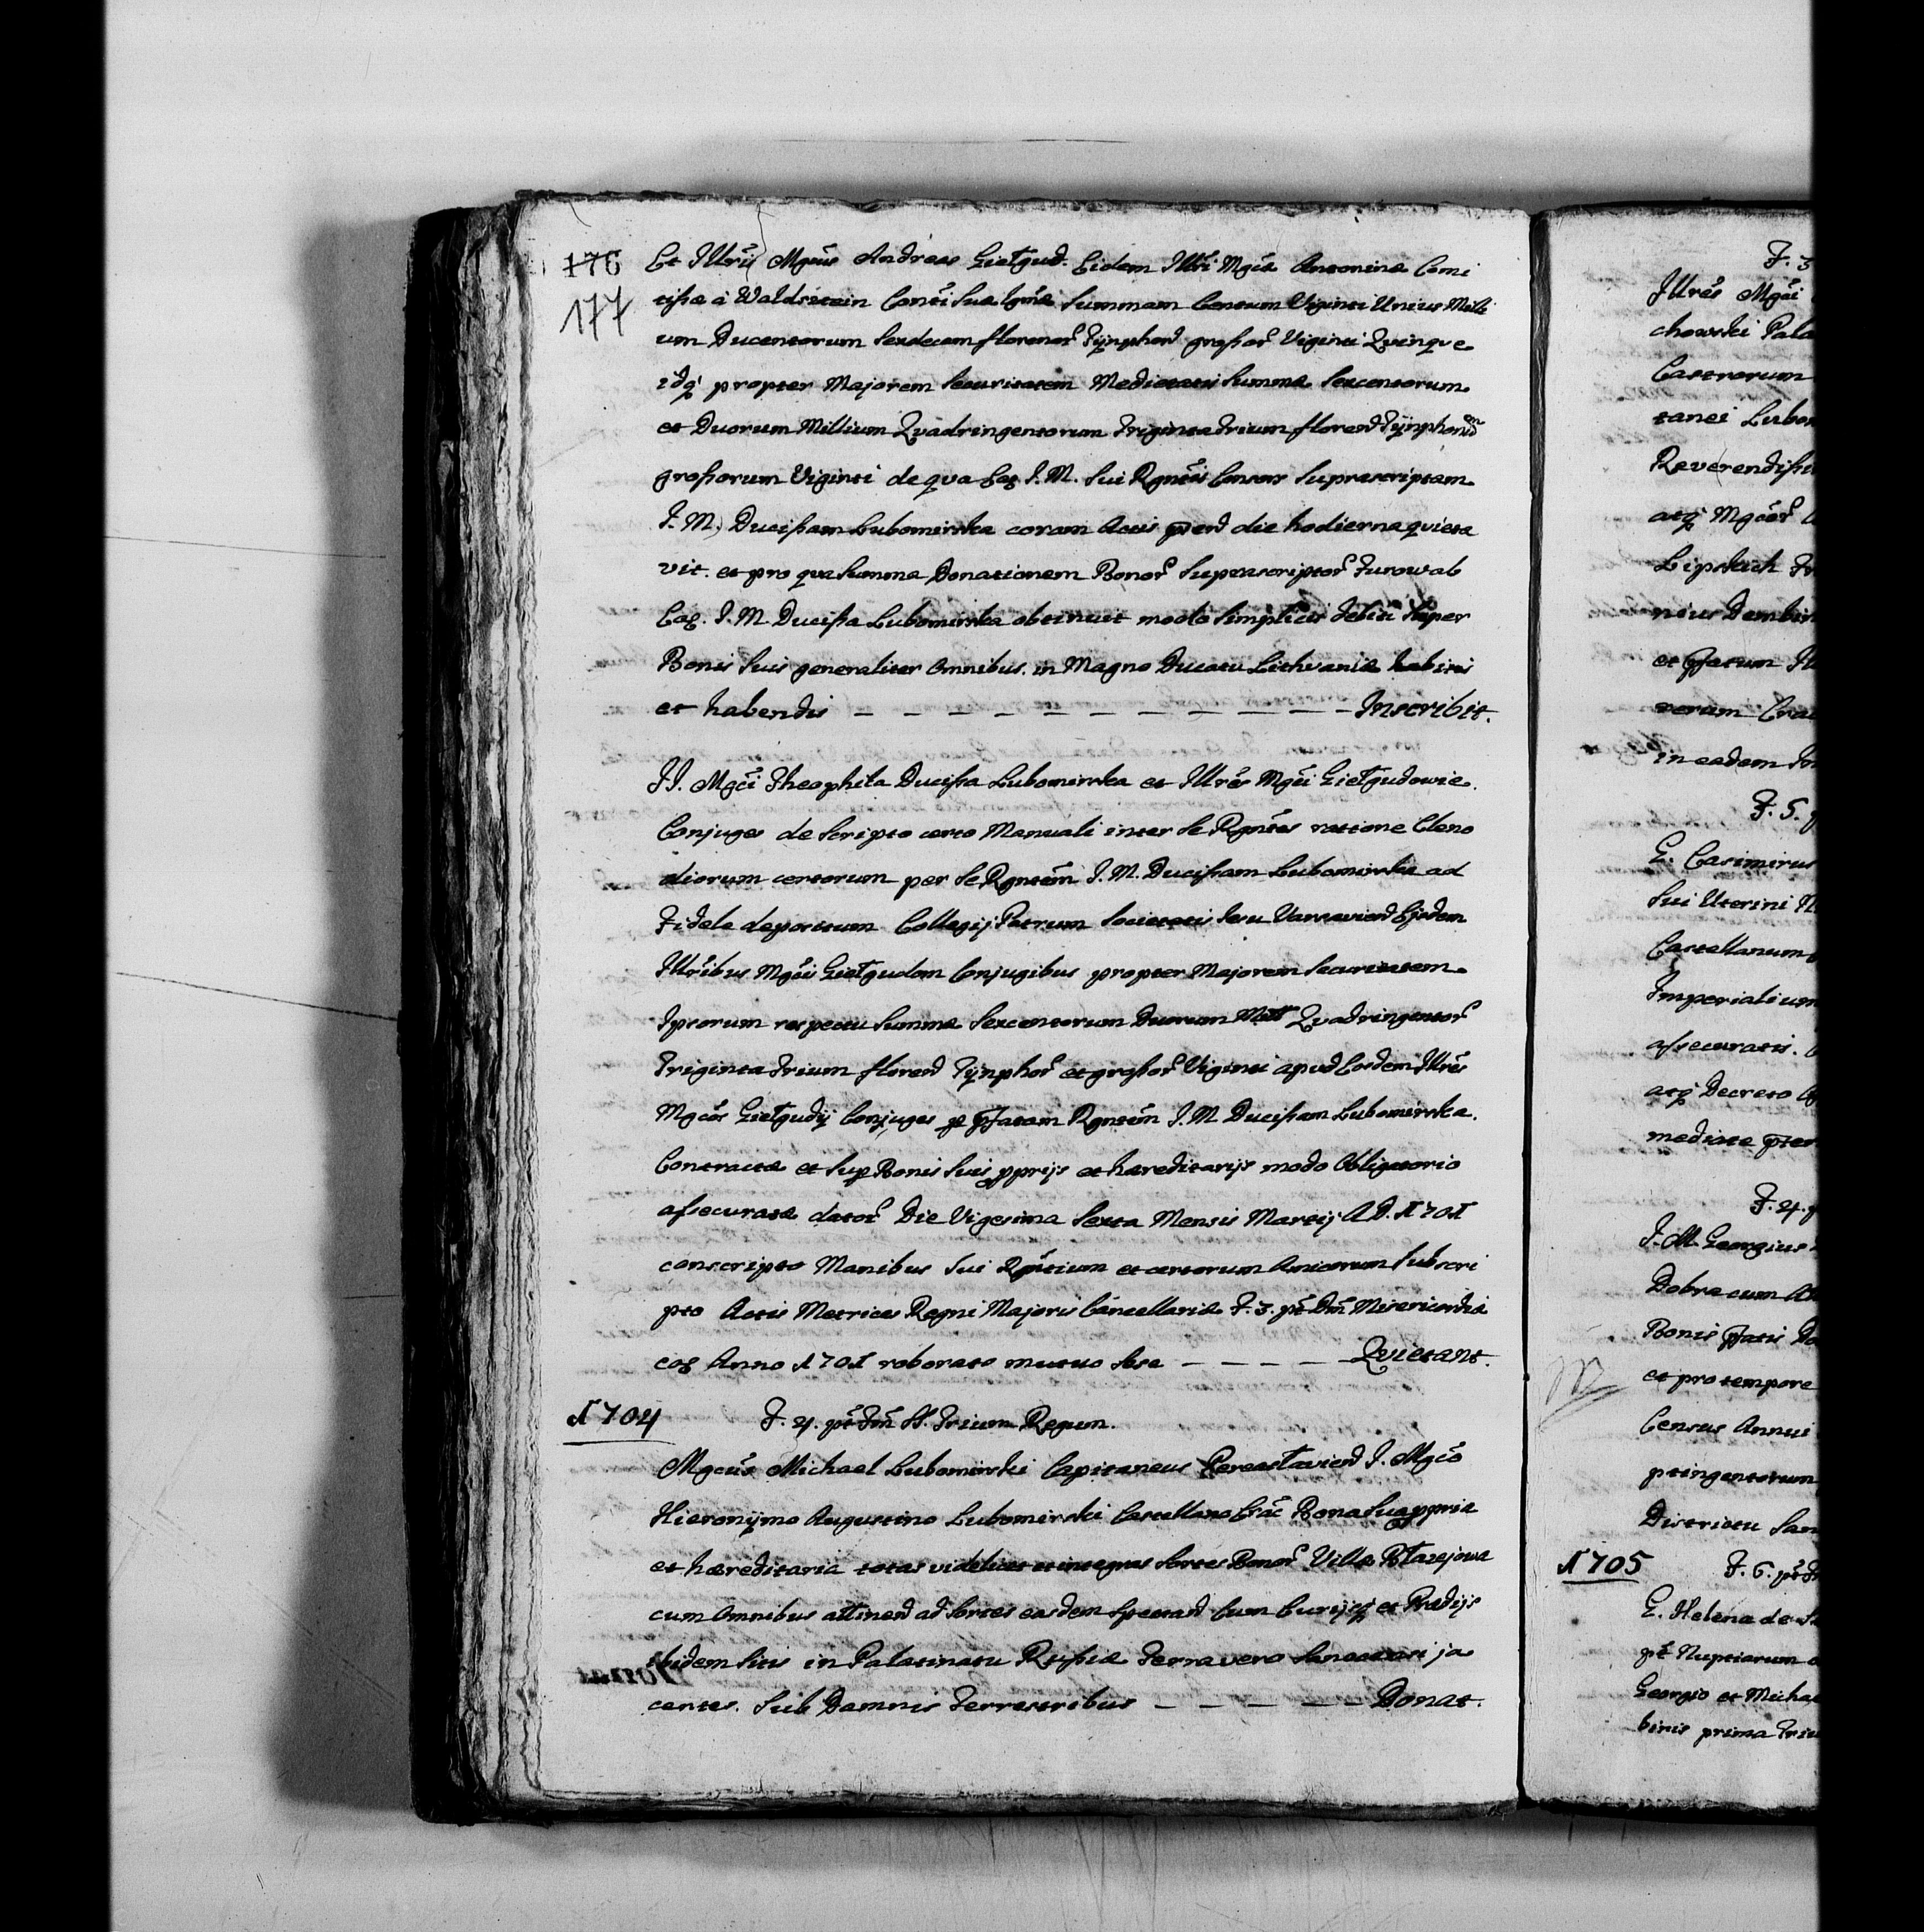 176
177
Et Illris Mgcus Andreas Giełgud. Eidem Illri Mgcæ Antoninæ Comi
tißæ à Waldsztein Conti Suæ Cgmæ Summam Centum Viginti Unius Milli
um Ducentorum Sexdecem florenor Tÿnphord großor Viginti Qvinqve
idq propter Majorem Securitatem Medietatis Summæ Sexcentorum
et Duorum Millium Qvadringentorum Triginta Trium florend Tÿnphonum
großorum Viginti de qva Eaq J. M. Sui Rgntis Consors Suprascriptam
J. M. Ducißam Lubomirska coram Actis pntd die hodierna qvieta
vit. et pro qva Summa Donationem Bonor Suprascriptor Turow ab
Eaq. J. M. Ducißa Lubomirska obtinuit modo Simplicis debiti Super
Bonis Suis generaliter Omnibus. in Magno Ducatu Lithvaniæ habitis
et habendis – – – – – – – – – – – Inscribit.
JJ. Mgci Theophila Ducißa Lubomirska et Illres Mgci Giełgudowie.
Conjuges de Scripto certo Manuali inter Se Rgntes ratione Cleno
diorum certorum per Se Rgntem J. M. Ducißam Lubomirska ad
Fidele depositum Collegij Patrum Societatis Jesu Varsaviend Ejsdem
Illribus Mgcis Giełgudom Conjugibus propter Majorem Securitatem
Ipsorum respectu Summæ Sexcentorum Duorum Mill Qvadringentor
Triginta Trium florend Tÿnphor et großor Viginti apud Eosdem Illres
Mgcos Giełgudÿ Conjuges p pfatam Rgntem J. M. Ducißam Lubomirska.
Contractæ et Sup Bonis Suis pprijs et hæreditarijs modo Obligatorio
aßecuratæ dator Die Vigesima Sexta Mensis Martij A D. 1701
conscripto Manibus Sui Rgntium et certorum Amicorum Subscri
pto Actis Metrices Regni Majoris Cancellariæ F. 3. pt Dm Misericordiæ
eoq Anno 1701 roborato mutuo Sese – – – – Qvietant.
1704 F. 4. pt Fm SS. Trium Regum.
Mgcus Michael Lubomirski Capitaneus Pereasłaviend J. Mgco
Hieronÿmo Augustino Lubomirski Castellano Crac Bona Sua ppria
et hæreditaria totas videlicet et integras Sortes Bonor Villæ Błazejowa
cum Omnibus attinend ad Sortes easdem Spectand Cum Curijsq et Prædijs
ibidem Sitis in Palatinatu Rußiæ Terra vero Sanocensi ja
centes. Sub Damnis Terrestribus – – – – – Donat.
F. 3
Illres Mgci
chowski Pala
Castrorum
tanei Lubo
Reverendißi
atq Mgcor
Lipskich
nius Dembin
et pfatum
verum
in eadem
F. 5.
G. Casimirus
Sui Uterini
Castellanum
Imperialium
aßecuratis.
atq Decreto
mediate
F. 4.
J. M. Georgius
Dobra cum
Bonis pfatis
et pro tempore
Census Annui
ptingentorum
Districtu San
1705 F. 6. pt
G. Helena de
pt Nuptiarum
Georgio et Micha
binis prima